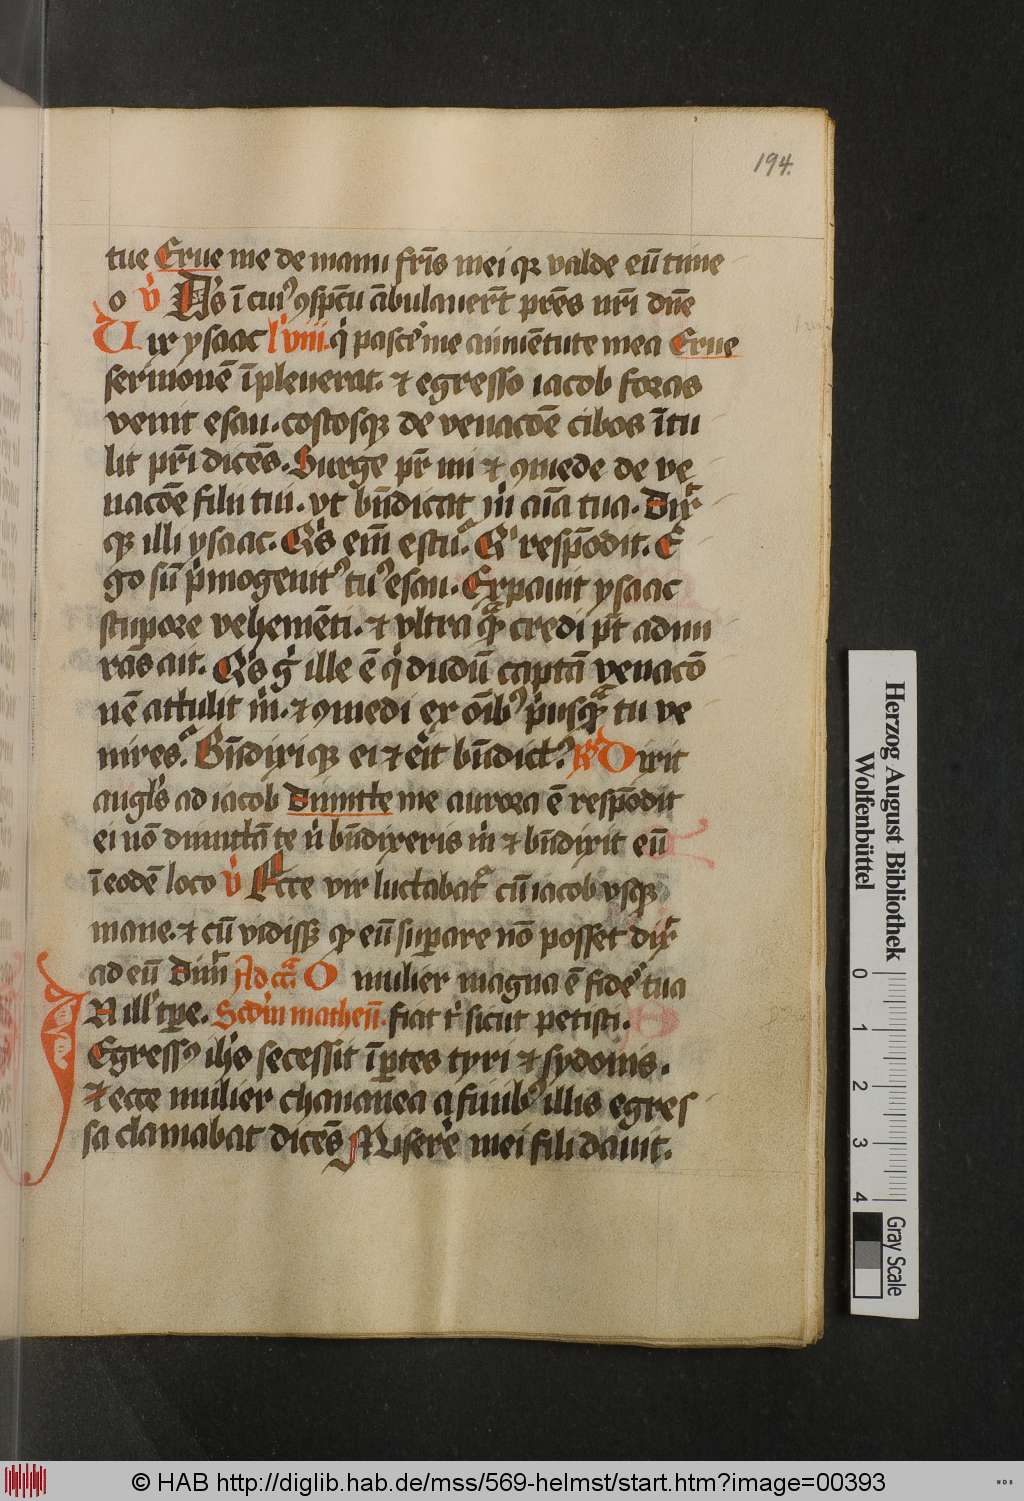 194.
tue Erue me de manu fr̄is mei q̨ valde eū time
o v̓ Ds̓ ī cuiꝰ ꝯspc̄tu ābulauer̄t pr̄es nr̄i dn̄e
Vir ysaac l'viii. q̓ pascēme a iuuētute mea Erue
sermonē īpleuerat. ⁊ egresso iacob foras
venit esau. coctosq̨ de venacōe cibos ītu
lit pr̄i dicēs. Surge pr̄ mi ⁊ ꝯmede de ve
nacōe filii tui. vt bn̄dicat m̓ aīa tua. Dix̄
q̨ illi ysaac. Qͥs em̄ es tu. Qͥ respōdit. E
go sū pͥmogenitꝰ tuꝰ esau. Expauit ysaac
stupore vehemēti. ⁊ vltra qͣ credi pt̄ admi
rās ait. Qͥs gͥ ille ē qͥ dudū captā venacō
nē attulit m̓. ⁊ ꝯmedi ex oībꝰ pͥusqͣ tu ve
nires. Bn̄dixiq̨ ei ⁊ eit̓ bn̄dictꝰ. R̓ Dixit
angl̓s ad iacob Dimitte me aurora ē respōdit
ei nō dimittā te n̓ bn̄dixeris m̓ ⁊ bn̄dixit eū
ī eodē loco v̓ Ecce vir luctabat̓ cū iacob vsq̨
mane. ⁊ cū vidissꝫ ꝙ eū suꝑare nō posset dix̄
ad eū Dim̄ Ad cͣ. O mulier magna ē fides tua
In ill' tꝑe. Scd̓m matheū. fiat t̓ sicut petisti.
Egressꝰ ih̄s secessit ī ꝑtes tyri ⁊ sydonis.
⁊ ecce mulier chananea a finibꝰ illis egres
sa clamabat dicēs Miserē mei fili dauit.
Herzog August Bibliothek
Wolfenbüttel
0 1 2 3 4
Gray Scale
© HAB http://diglib.hab.de/mss/569-helmst/start.htm?image=00393